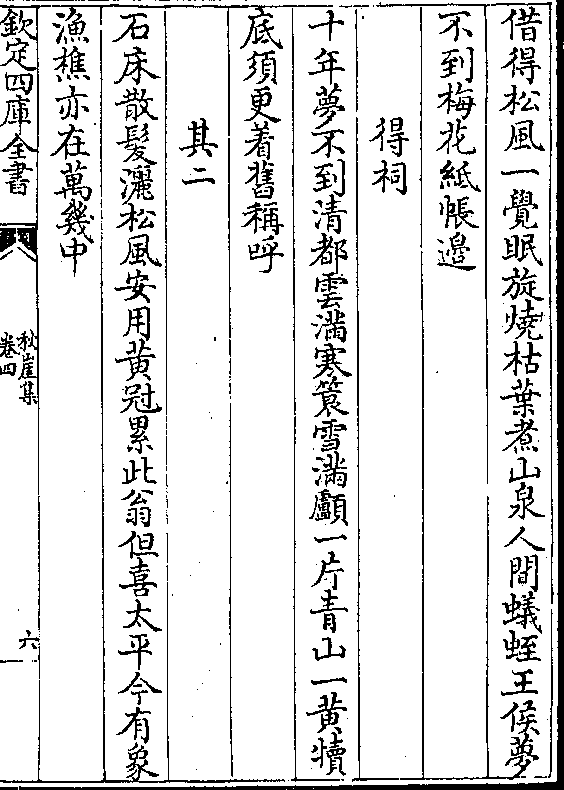 借得松風一覺眠旋燒枯葉煮山泉人間蟻蛭王侯夢
不到梅花紙帳邉
得祠
十年夢不到清都雲滿寒簑雪滿顱一片青山一黄犢
底須更着舊稱呼
其二
石床散髮灑松風安用黄冠累此翁但喜太平今有象
漁樵亦在萬幾中
欽定四庫全書
秋崖集
卷四
六